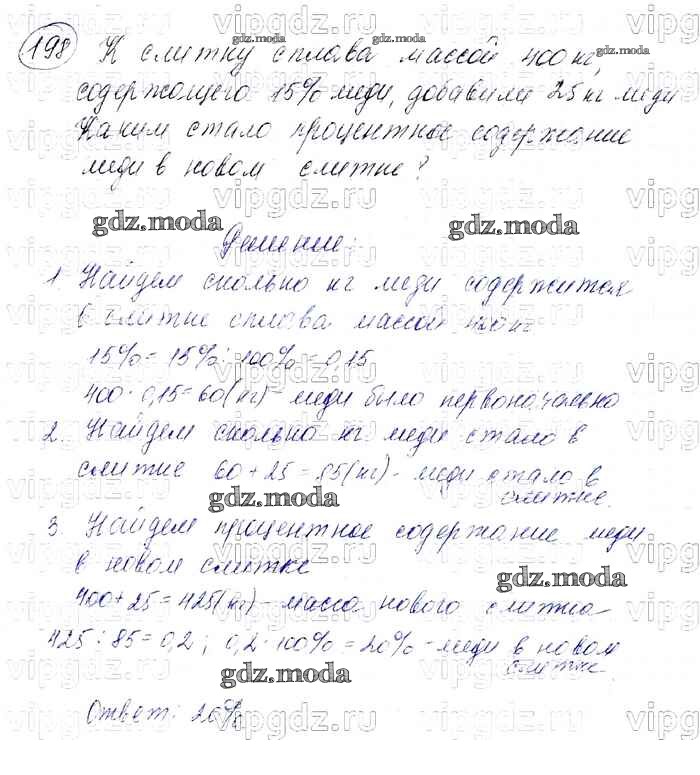 198 К слитку сплава массой 400 кг,
содержащего 15% меди, добавили 25 кг меди
Каким стало процентное содержание
меди в новом слитке?
gdz.moda
Решение:
1. Найдем сколько кг меди содержится
в слитке сплава массой 400 кг
15% = 15% : 100% = 0,15
400 · 0,15 = 60 (кг) - меди было первоначально
2. Найдем сколько кг меди стало в
слитке 60 + 25 = 85 (кг) - меди стало в
слитке.
gdz.moda
3. Найдем процентное содержание меди
в новом слитке
gdz.moda
400 + 25 = 425 (кг) - масса нового слитка
425 : 85 = 0,2 ; 0,2 · 100% = 20% - меди в новом
слитке.
gdz.moda
Ответ: 20%
vipgdz.ru